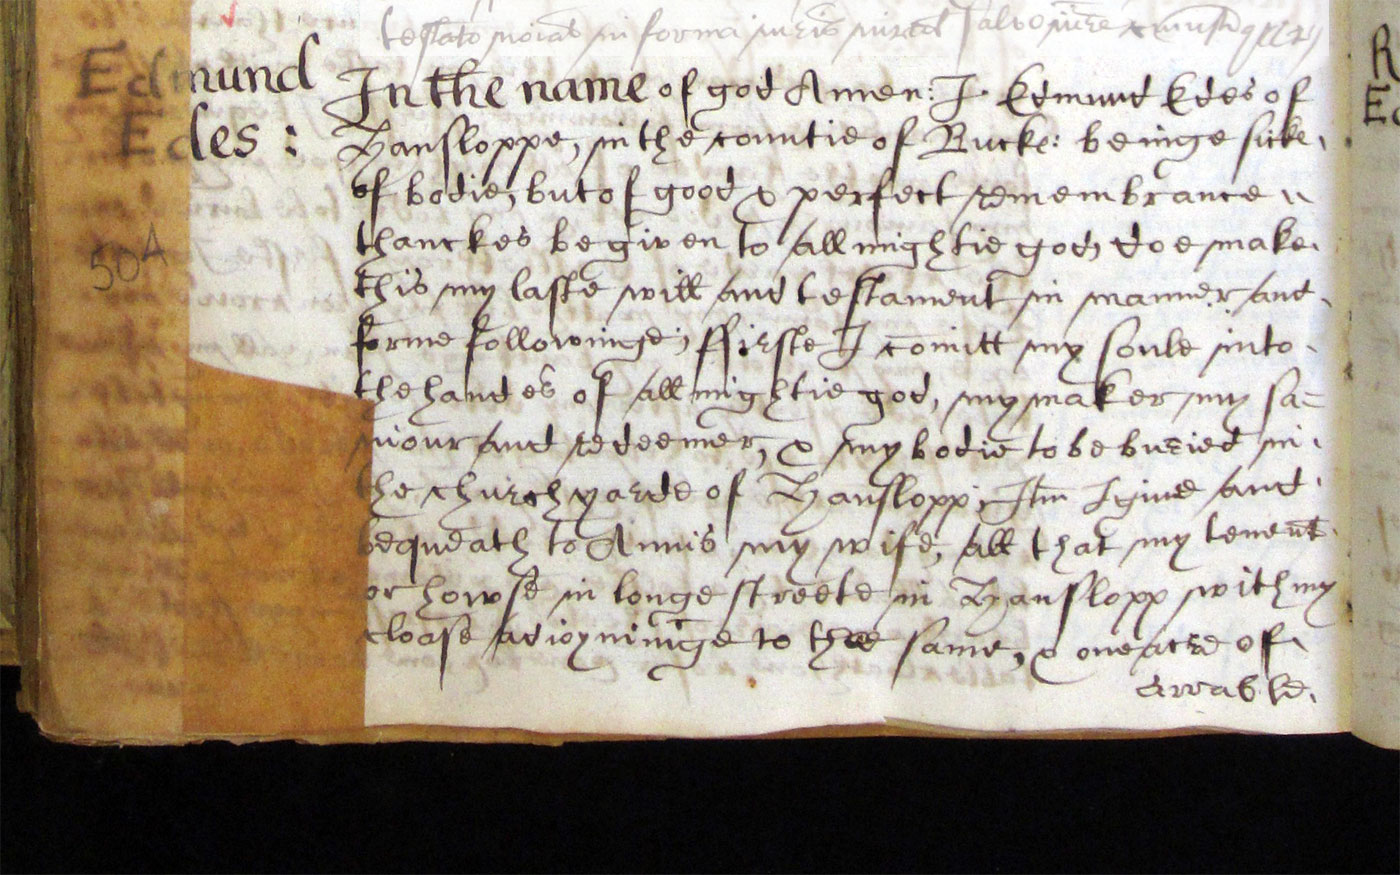 Edmund
Edes :
50A
In the name of god Amen: I Edmund Edes of
Hansloppe, in the countie of Buck: beinge sicke
of bodie, but of good & perfect remembrance
thanckes be given to allmightie god, doe make
this my laste will and testament in manner and
forme followinge; ffirste I comitt my soule into
the handes of allmightie god, my maker my sa=
uiour and redeemer, & my bodie to be buried in
the churchyarde of Hanslopp; Itm I give and
bequeath to Annis my wife, all that my tenemt
or howse in longe streete in Hanslopp with my
close adioyninge to the same, & one acre of
arrable.
R
Ed